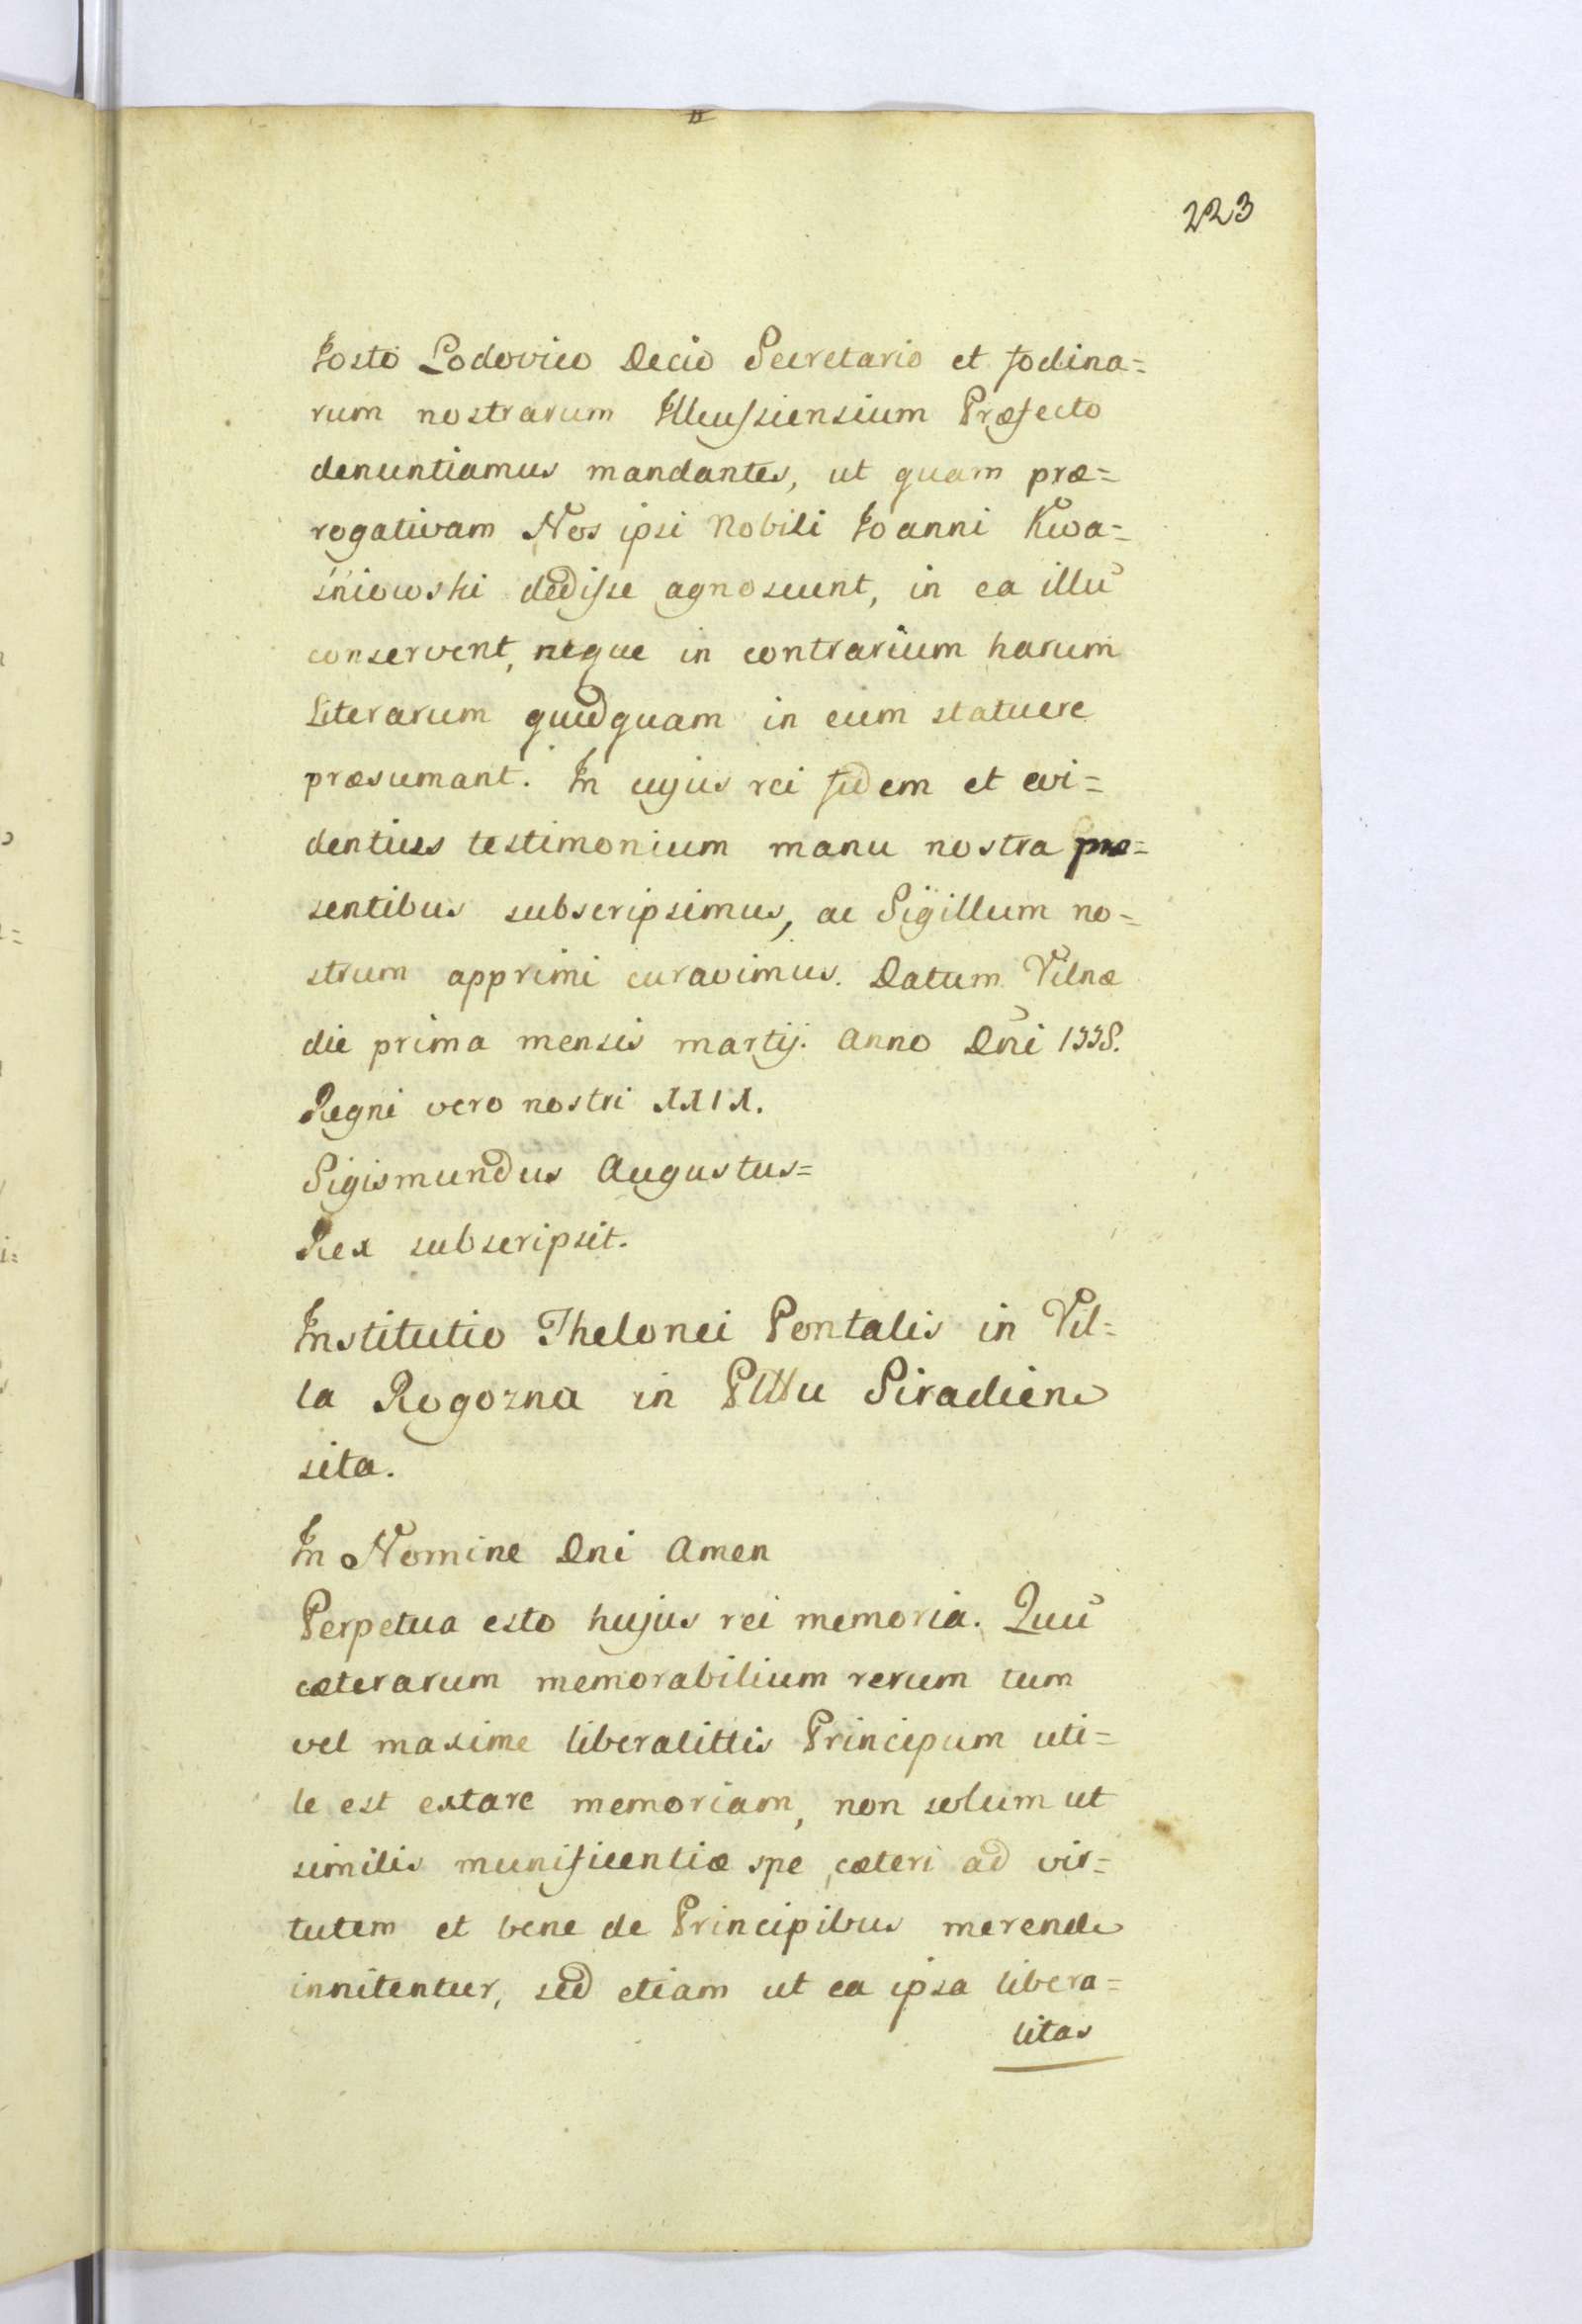 223
Josto Lodovico Decio Secretario et fodina=
rum nostrarum Illcussiensium Præfecto
denuntiamus mandantes, ut quam præ=
rogativam Nos ipsi Nobili Joanni Kwa=
śniowski dedisse agnoscunt, in ea illū
conservent, neque in contrarium harum
Literarum quidquam in eum statuere
præsumant. In cujus rei fidem et evi=
dentius testimonium manu nostra præ=
sentibus subscripsimus, ac Sigillum no=
strum apprimi curavimus. Datum Vilnæ
die prima mensis martij. Anno Dñi 1558.
Regni vero nostri XXIX.
Sigismundus Augustus=
Rex subscripsit.
Institutio Thelonei Pontalis in Vil=
la Rogozna in Plttu Siradien
sita.
In Nomine Dni Amen
Perpetua esto hujus rei memoria. Quū
cæterarum memorabilium rerum tum
vel maxime liberalittis Principum uti=
le est extare memoriam, non solum ut
similis munificentiæ spe cæteri ad vir=
tutem et bene de Principibus merende
innitentur, sed etiam ut ea ipsa libera=
litas